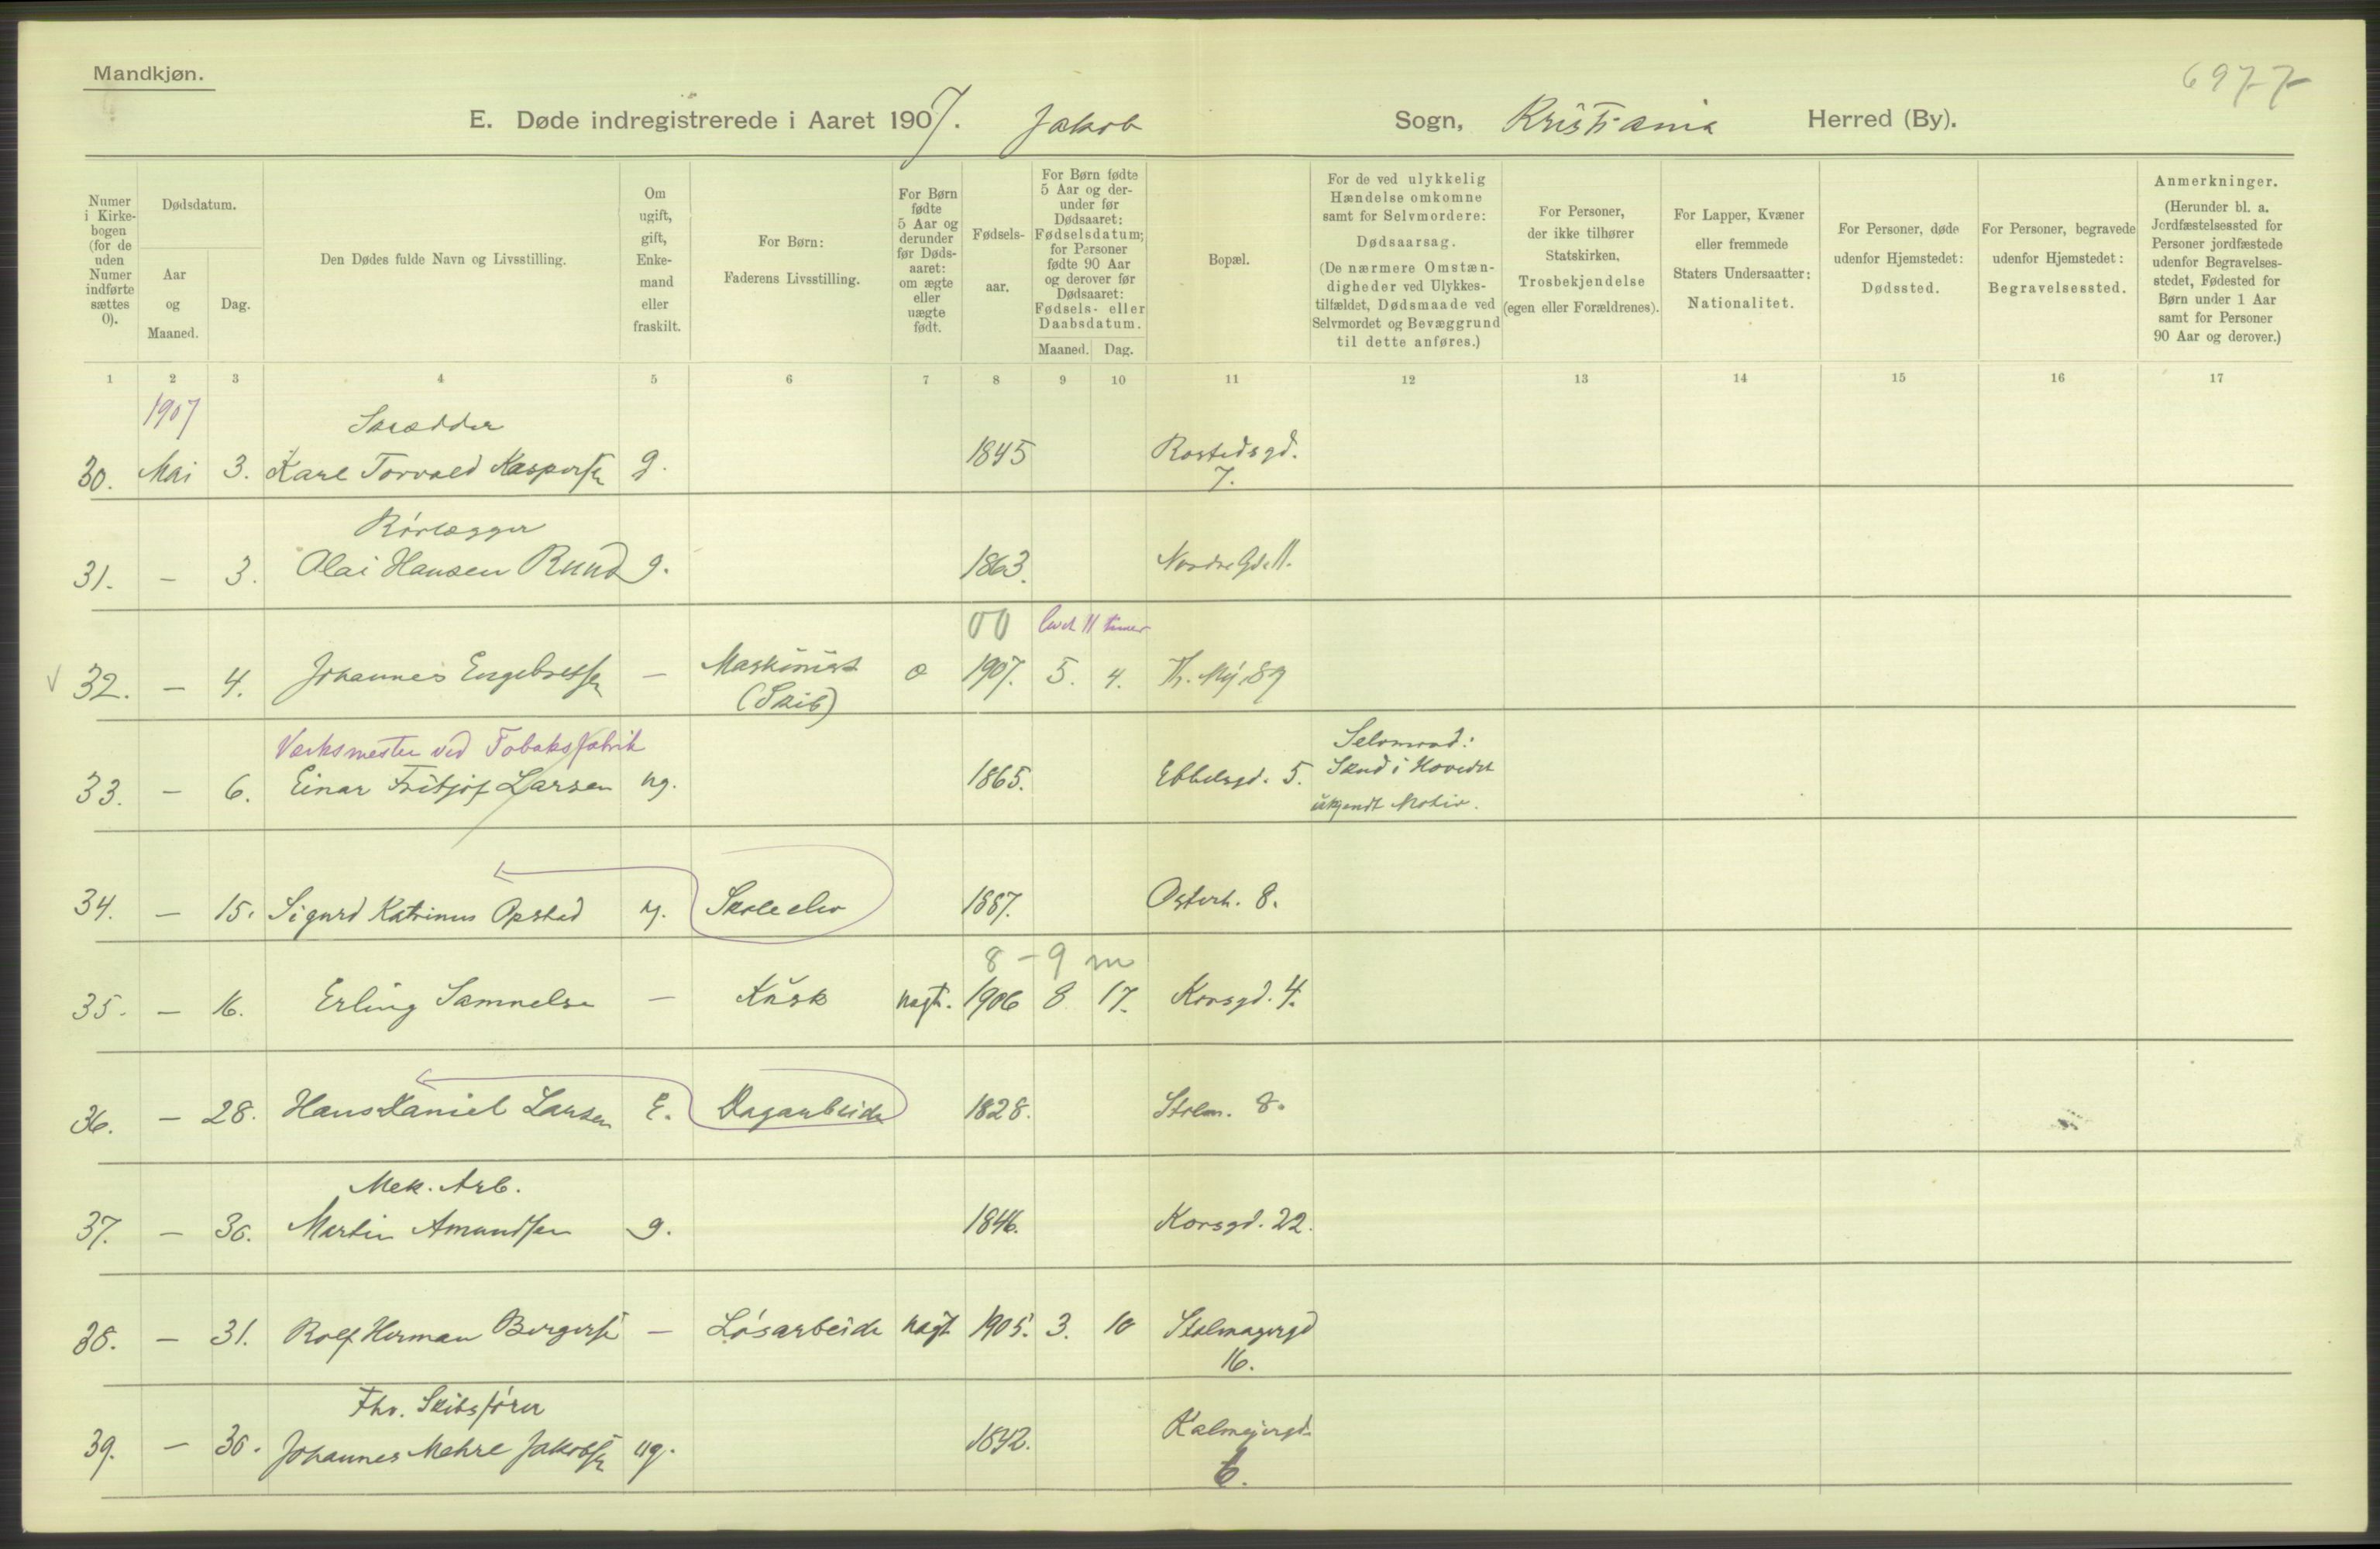 Mandkjøn.
6977
E. Døde indregistrerede i Aaret 1907. Jakob Sogn, Kristiania Herred (By).
Numer i Kirkebogen (for de uden Numer indførte sættes 0).
Dødsdatum.
Aar og Maaned.
Dag.
Den Dødes fulde Navn og Livsstilling.
Om ugift, gift, Enkemand eller fraskilt.
For Børn: Faderens Livsstilling.
For Børn fødte 5 Aar og derunder før Dødsaaret: om ægte eller uægte født.
Fødselsaar.
For Børn fødte 5 Aar og derunder før Dødsaaret: Fødselsdatum; for Personer fødte 90 Aar og derover før Dødsaaret: Fødsels- eller Daabsdatum.
Maaned. Dag.
Bopæl.
For de ved ulykkelig Hændelse omkomne samt for Selvmordere: Dødsaarsag. (De nærmere Omstændigheder ved Ulykkestilfældet, Dødsmaade ved Selvmordet og Bevæggrund til dette anføres.)
For Personer, der ikke tilhører Statskirken, Trosbekjendelse (egen eller Forældrenes).
For Lapper, Kvæner eller fremmede Staters Undersaatter: Nationalitet.
For Personer, døde udenfor Hjemstedet: Dødssted.
For Personer, begravede udenfor Hjemstedet: Begravelsessted.
Anmerkninger. (Herunder bl. a. Jordfæstelsessted for Personer jordfæstede udenfor Begravelsesstedet, Fødested for Børn under 1 Aar samt for Personer 90 Aar og derover.)
1 2 3 4 5 6 7 8 9 10 11 12 13 14 15 16 17
1907
Skrædder
30. Mai 3. Karl Torvald Kaspersen g. 1845 Rostedsgd. 7.
Rørlægger
31. — 3. Olai Hansen Rund g. 1863. Nordregd. 11.
00 levet 11 timer
32. — 4. Johannes Engebretsen — Maskinist (Skib) 1907. 5. 4. Th. My. 89
Værksmester ved Tobaksfabrik
33. — 6. Einar Fritjof Larsen ug. 1865. Ebbelsgd. 5. Selvmord: Skud i Hovedet ukjendt Motiv.
34. — 15. Sigurd Katrinus Opstad Skoleelev 1887. Osterh. 8.
8 - 9 m
35. — 16. Erling Samuelsen — Kusk uægt. 1906 8 17. Korsgd. 4.
36. — 28. Hans Daniel Larsen E. Dagarbeider 1828. Stolm. 8.
Mek. Arb.
37. — 30. Martin Amundsen g. 1846. Korsgd. 22.
38. — 31. Rolf Herman Bergersen — Løsarbeider uægt 1905. 3. 10 Stolmagergd 16.
Fhv. Skibsfører
39. — 30. Johannes Mehre Jakobsen ug. 1842. Kalmeyergd. 6.